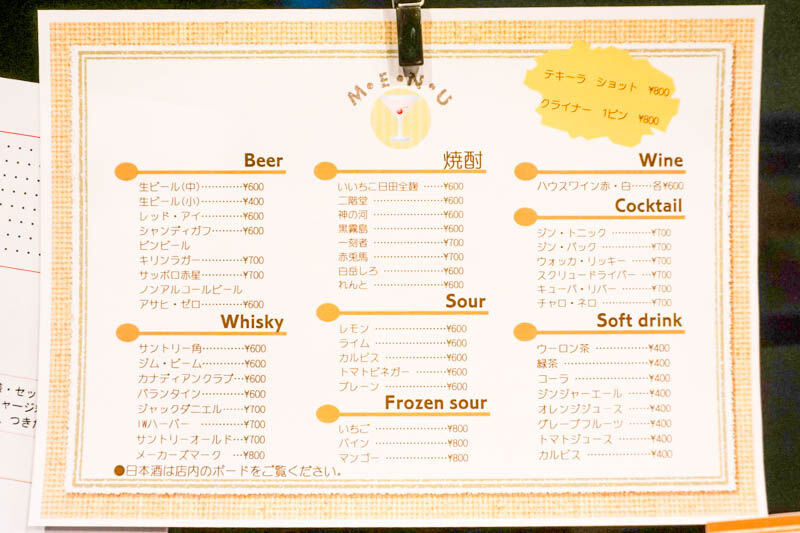 M・E・N・U
テキーラ ショット ¥800
クライナー 1ビン ¥800
Beer
生ビール(中)…………¥600
生ビール(小)…………¥400
レッド・アイ…………¥600
シャンディガフ………¥600
ビンビール
キリンラガー…………¥700
サッポロ赤星…………¥700
ノンアルコールビール
アサヒ・ゼロ…………¥600
Whisky
サントリー角…………¥600
ジム・ビーム…………¥600
カナディアンクラブ…¥600
バランタイン…………¥600
ジャックダニエル……¥700
IWハーパー …………¥700
サントリーオールド…¥700
メーカーズマーク …¥800
焼酎
いいちこ日田全麹 ……¥600
二階堂 …………………¥600
神の河 …………………¥600
黒霧島 …………………¥600
一刻者 …………………¥700
赤兎馬 …………………¥700
白岳しろ ………………¥600
れんと …………………¥600
Sour
レモン …………………¥600
ライム …………………¥600
カルピス ………………¥600
トマトビネガー ………¥600
プレーン ………………¥600
Frozen sour
いちご …………………¥800
パイン …………………¥800
マンゴー ………………¥800
Wine
ハウスワイン赤・白……各¥600
Cocktail
ジン・トニック …………¥700
ジン・バック ……………¥700
ウォッカ・リッキー ……¥700
スクリュードライバー …¥700
キューバ・リバー ………¥700
チャロ・ネロ ……………¥700
Soft drink
ウーロン茶 ………………¥400
緑茶 ………………………¥400
コーラ ……………………¥400
ジンジャーエール ………¥400
オレンジジュース ………¥400
グレープフルーツ ………¥400
トマトジュース …………¥400
カルピス …………………¥400
●日本酒は店内のボードをご覧ください。